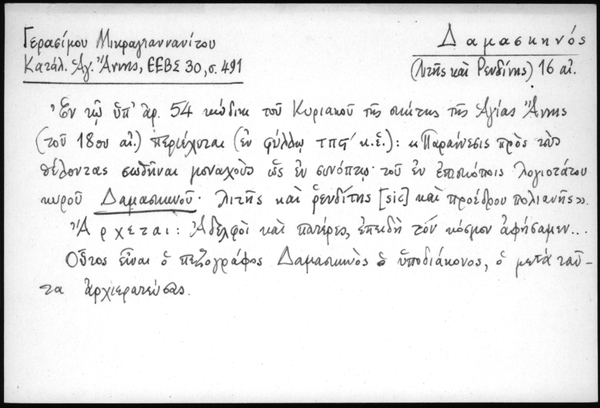 Γερασίμου Μικραγιαννανίτου
Κατάλ. Ἁγ. Ἄννης, ΕΕΒΣ 30, σ. 491
Δαμασκηνός
(Λιτῆς καὶ Ρενδίνης) 16 αἰ.
Ἐν τῷ ὑπ' ἀρ. 54 κώδικι τοῦ Κυριακοῦ τῆς σκήτης τῆς Ἁγίας Ἄννης
(τοῦ 18ου αἰ.) περιέχεται (ἐν φύλλῳ τπσ' κ.ἑ.): «Παραίνεσις πρὸς τοὺς
θέλοντας σωθῆναι μοναχοὺς ὡς ἐν συνόψει· τοῦ ἐν ἐπισκόποις λογιοτάτου
κυροῦ Δαμασκηνοῦ· λιτῆς καὶ ῥενδίτης [sic] καὶ προέδρου πολιανῆς».
Ἄρχεται: Ἀδελφοὶ καὶ πατέρες, ἐπειδὴ τὸν κόσμον ἀφήσαμεν...
Οὗτος εἶναι ὁ πεζογράφος Δαμασκηνὸς ὁ ὑποδιάκονος, ὁ μετὰ ταῦ-
τα ἀρχιερατεύσας.